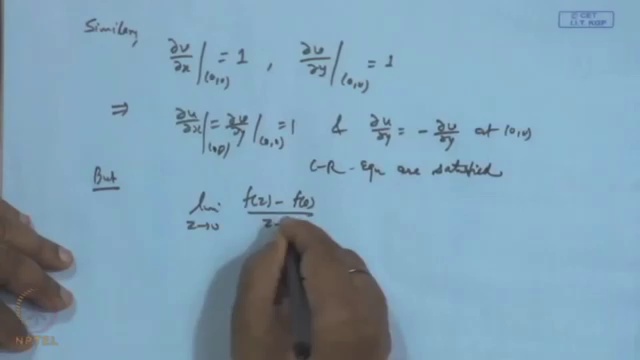 © CET
I.I.T. KGP
Similarly,
∂v/∂x|(0,0) = 1 , ∂v/∂y|(0,0) = 1
⇒ ∂u/∂x|(0,0) = ∂v/∂y|(0,0) = 1 & ∂u/∂y = - ∂v/∂y at (0,0)
C-R-Eqn are satisfied
But
lim z→0 f(z) - f(0) / z-
NPTEL